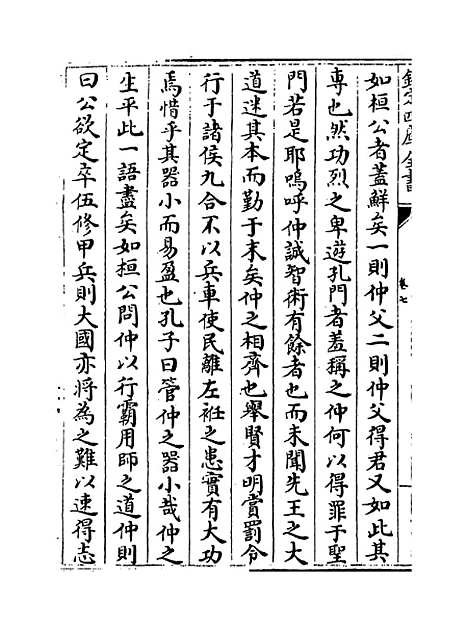 欽定四庫全書
卷七
如桓公者蓋鮮矣一則仲父二則仲父得君又如此其
専也然功烈之卑遊孔門者蓋稱之仲何以得罪于聖
門若是耶嗚呼仲誠智術有餘者也而未聞先王之大
道迷其本而勤于末矣仲之相齊也舉賢才明賞罰令
行于諸侯九合不以兵車使民離左袵之患實有大功
焉惜乎其器小而易盈也孔子曰管仲之器小哉仲之
生平此一語盡矣如桓公問仲以行霸用師之道仲則
曰公欲定卒伍修甲兵則大國亦將為之難以速得志